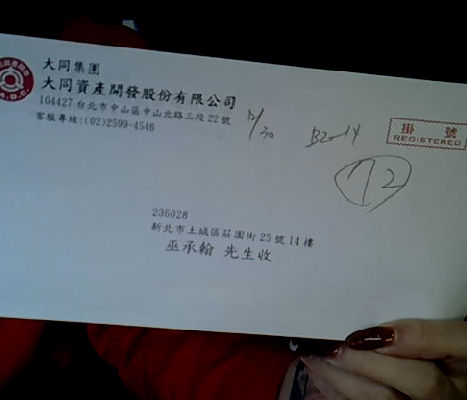 大同集團
大同資產開發股份有限公司
104427台北市中山區中山北路三段22號
客服專線:(02)2599-4546
12/30
B2-14
掛 號
REGISTERED
72
236028
新北市土城區莊園街25號14樓
巫承翰 先生收